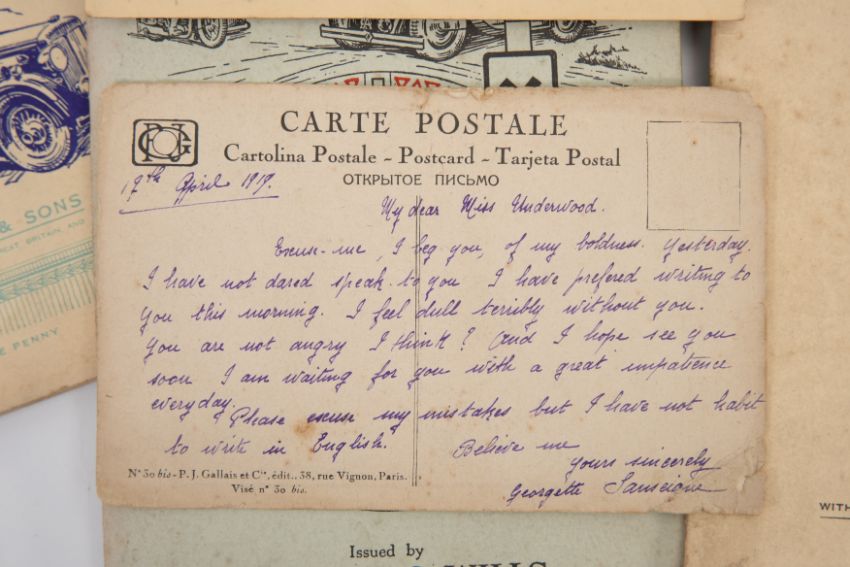 & SONS
GREAT BRITAIN AND
E PENNY
CARTE POSTALE
Cartolina Postale - Postcard - Tarjeta Postal
ОТКРЫТОЕ ПИСЬМО
17th April 1919.
My dear Miss Underwood.
Excuse-me, I beg you, of my boldness. Yesterday.
I have not dared speak to you I have prefered writing to
you this morning. I feel dull teribly without you.
You are not angry I think? And I hope see you
soon I am waiting for you with a great impatience
everyday.
Please excuse my mistakes but I have not habit
to write in English.
Believe me
yours sincerely
Georgette
No 30 bis - P. J. Gallais et Cie, édit., 38, rue Vignon, Paris.
Visé no 30 bis.
WITH
Issued by
WILLS